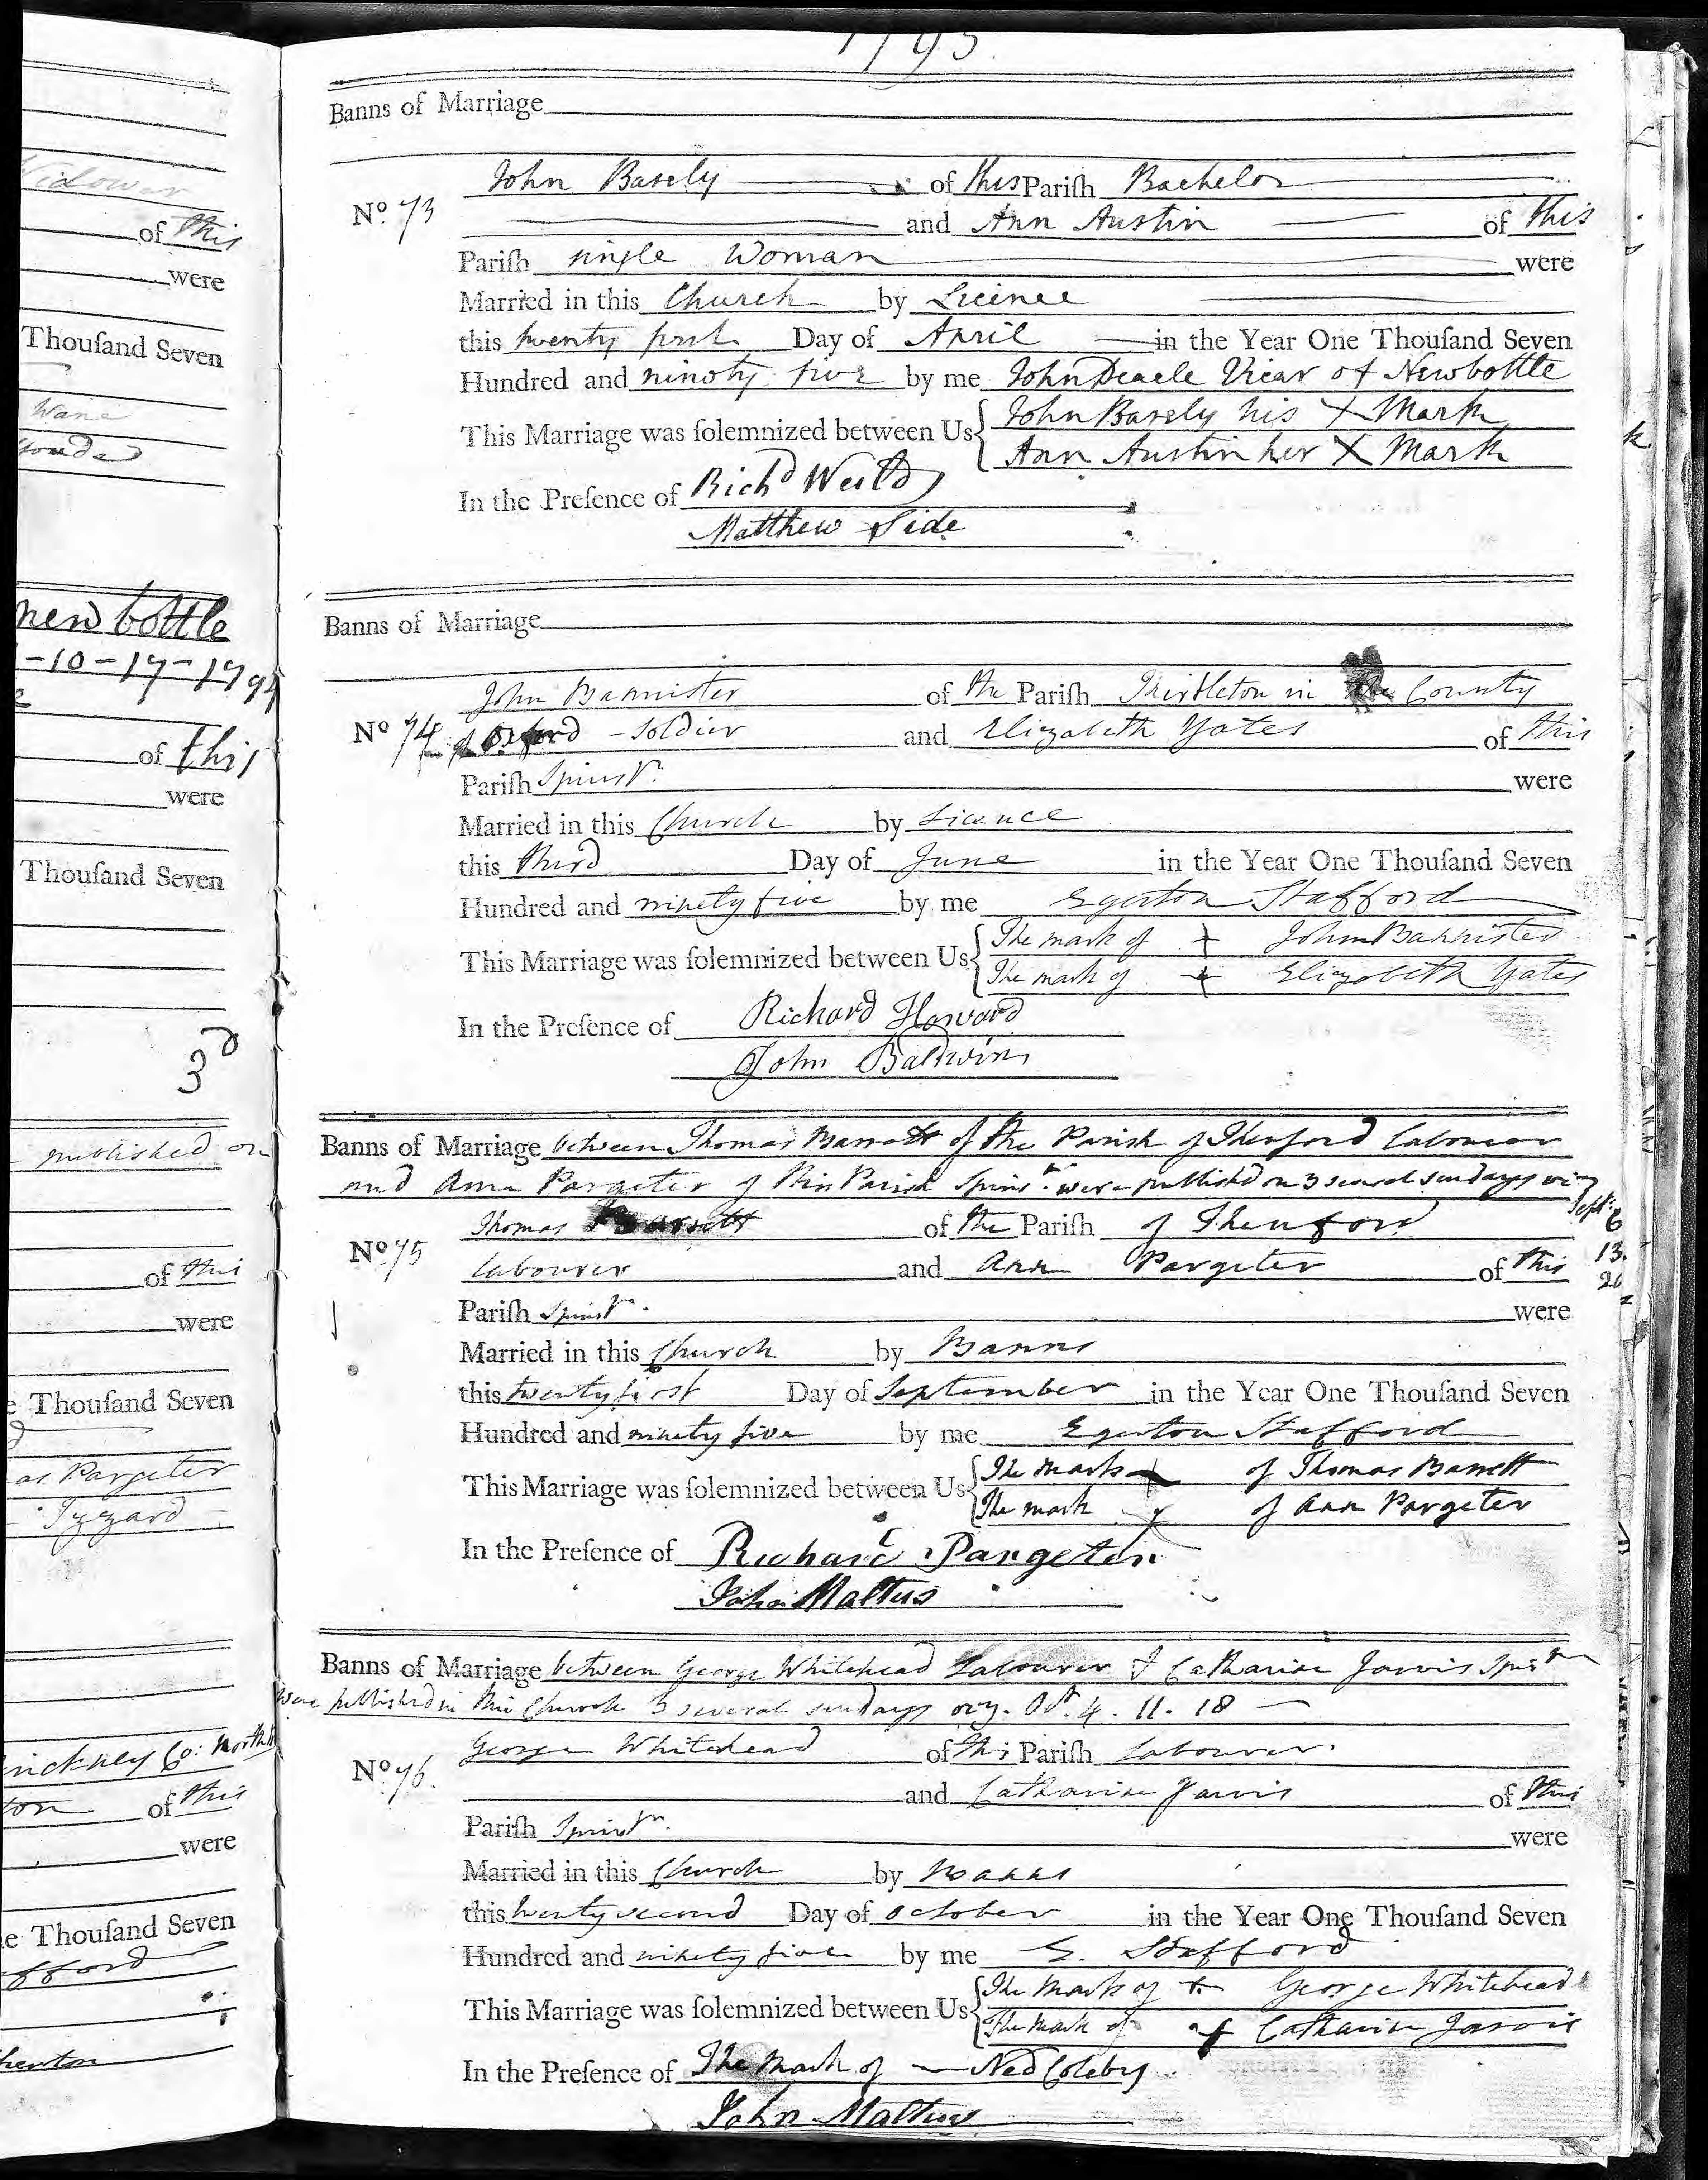 1795
Banns of Marriage
John Basely of this Parish Bachelor
No. 73 and Ann Austin of this
Parish single Woman were
Married in this Church by Licence
this twenty first Day of April in the Year One Thousand Seven
Hundred and ninety five by me John Deacle Vicar of Newbottle
This Marriage was solemnized between Us John Basely his X Mark
Ann Austin her X Mark
In the Presence of Richd Weild
Matthew Side
Banns of Marriage
John Bannister of the Parish in the County
No 74 of Oxford - Soldier and Elizabeth Yates of this
Parish Spinstr. were
Married in this Church by Licence
this third Day of June in the Year One Thousand Seven
Hundred and ninety five by me Egerton Stafford
This Marriage was solemnized between Us The mark of + John Bannister
The mark of + Elizabeth Yates
In the Presence of Richard Howard
John Baldwin
Banns of Marriage between Thomas Barrett of the Parish of Thenford Labourer
and Ann Pargeter of this Parish Spinsr. were published on 3 several sundays viz
Sept. 6
13.
20
Thomas Barrett of the Parish of Thenford
No 75 Labourer and Ann Pargeter of this
Parish Spinstr. were
Married in this Church by Banns
this twenty first Day of September in the Year One Thousand Seven
Hundred and ninety five by me Egerton Stafford
This Marriage was solemnized between Us The mark + of Thomas Barrett
The mark x of Ann Pargeter
In the Presence of Richard Pargeter
John Maltus
Banns of Marriage between George Whitehead Labourer & Catharine Jarvis Spinstr
were published in this Church 3 several sundays viz. Oct. 4. 11. 18
George Whitehead of this Parish Labourer.
No 76. and Catharine Jarvis of this
Parish Spinstr. were
Married in this Church by Banns
this twenty second Day of October in the Year One Thousand Seven
Hundred and ninety five by me E. Stafford
This Marriage was solemnized between Us The mark of + George Whitehead
The mark of + Catharine Jarvis
In the Presence of The mark of — Ned Coleby
John Maltus
Widower
of this
were
Thousand Seven
newbottle
-10-17-1794
of this
were
Thousand Seven
3d
published on
of this
were
Thousand Seven
as Pargeter
Tyzard
of this
were
Thousand Seven